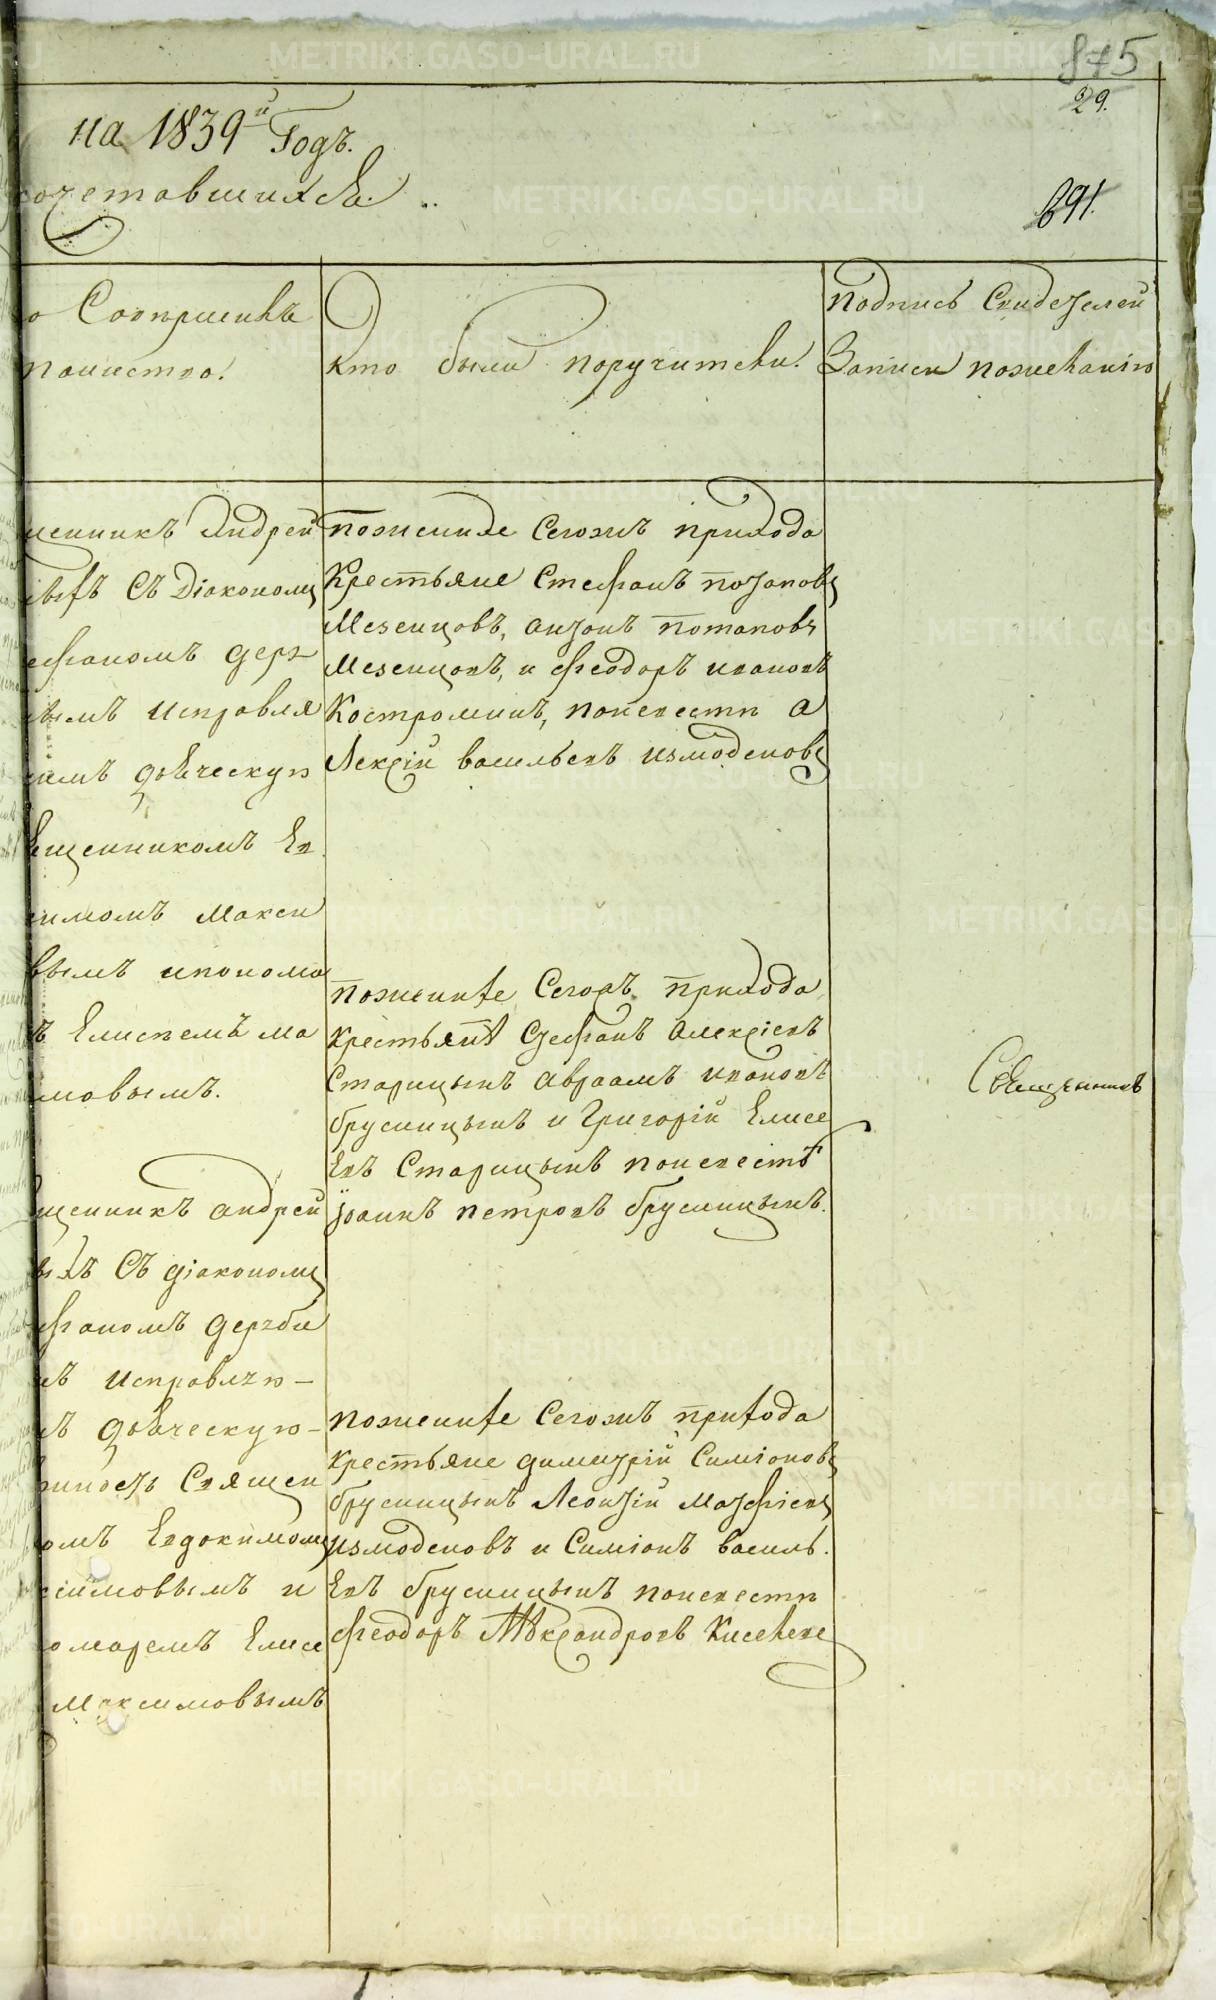 875
29.
на 1839й Годъ.
сочетавшихся.
691.
о Совершивъ
таинство.
Кто были поручители.
подпись Свидетелей
Записи пожеланію
щенникъ Андрей
съ Діакономъ
ефаномъ дерз
вымъ исправля
имъ дьяческую
щенникомъ Ев
кимомъ макси
вымъ ипонома
ъ Елисѣемъ ма
мовымъ.
пожениҳе Сегожъ прихода
Крестьяне Стефанъ потаповъ
Мезенцовъ, антонъ потаповъ
Мезенцовъ, и феодоръ ивановъ
Костроминъ, поневестѣ А
Лексій васильевъ измоденовъ
поженихе Сегожъ прихода
крестьянѣ Стефанъ Алексіевъ
Старицынъ авраамъ ивановъ
брусницынъ и Григорій Елисе
евъ Старицынъ поневестѣ
іоаннъ петровъ брусницынъ.
Священникъ
щенникъ андрей
ыхъ Съ діакономъ
ефаномъ держби
ъ исправляю-
ъ дьяческую-
инность Священ
омъ Евдокимомъ
ксимовымъ и
омаремъ Елисе
максимовымъ
поженихе Сегожъ прихода
крестьяне димитрій Симіоновъ
брусницынъ Леонтій Матфіевъ
измоденовъ и Симіонъ василь.
евъ брусницынъ поневестѣ
феодоръ Александровъ Киселевъ